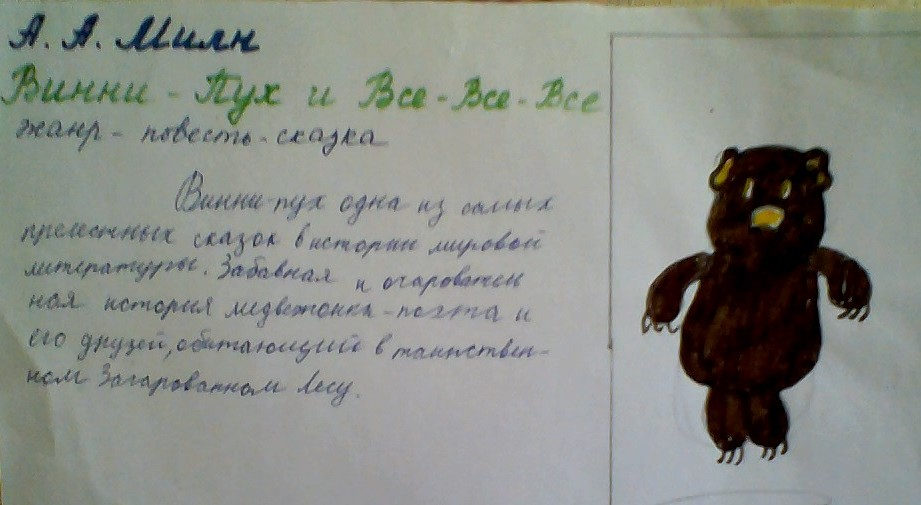 А. А. Милн
Винни - Пух и Все - Все - Все
жанр - повесть - сказка
Винни-пух одна из самых
прелестных сказок в истории мировой
литературы. Забавная и очарователь
ная история медвежонка - поэта и
его друзей, обитающий в таинствен-
ном Зачарованном Лесу.